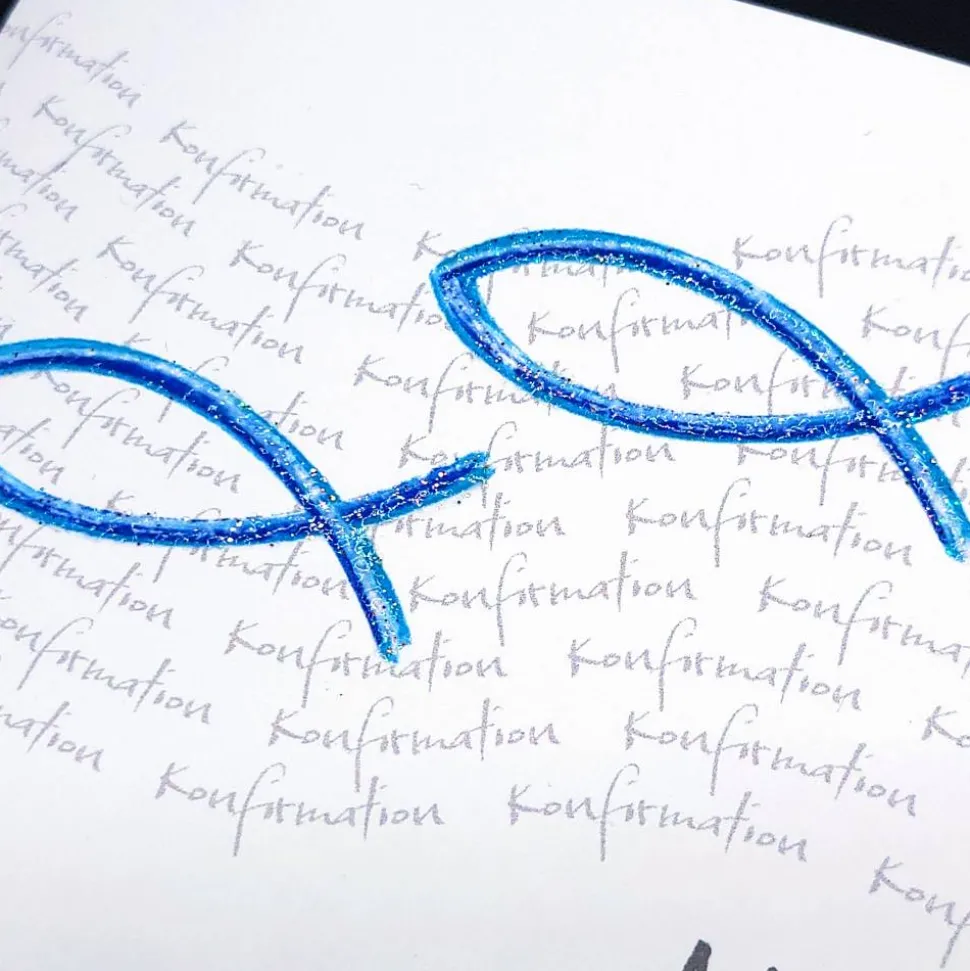 onfirmation Konfirmation Konfirmation Konfirmatio
Konfirmation Konfirmation Konfirmation Konf
mation Konfirmation Konfirmation Konfir
rmation Konfirmation Konfirmation Konfirm
Konfirmation Konfirmation Konfirmation
ation Konfirmation Konfirmation Konfirma
onfirmation Konfirmation Konfirmation
onfirmation Konfirmation Konfirmation Ko
mation Konfirmation Konfirmation Konf